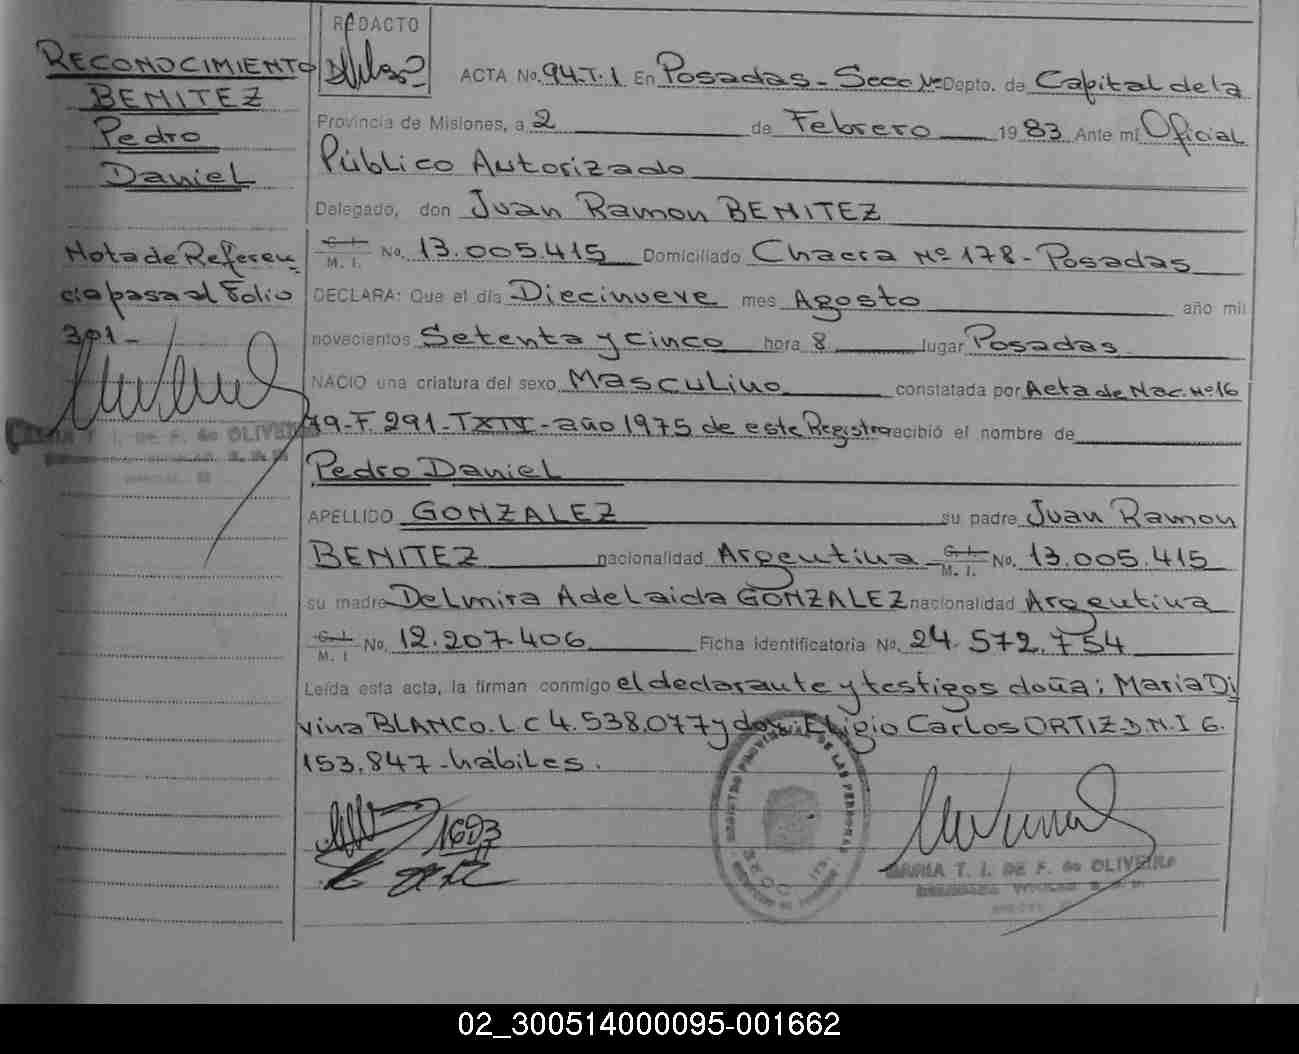 RECONOCIMIENTO
BENITEZ
Pedro
Daniel
Nota de Referen
cia pasa al Folio
301-
REDACTO
ACTA No. 94.T.1 En Posadas - Secc Nº Depto. de Capital de la
Provincia de Misiones, a 2 de Febrero 1983 Ante mí Oficial
Público Autorizado
Delegado, don Juan Ramon BENITEZ
C. I. M. I. No. 13.005.415 Domiciliado Chacra Nº 178 - Posadas
DECLARA: Que el día Diecinueve mes Agosto año mil
novecientos Setenta y cinco hora 8 lugar Posadas
NACIO una criatura del sexo Masculino constatada por Acta de Nac. Nº 16
79-F. 291-T XIV - año 1975 de este Registro recibió el nombre de
Pedro Daniel
APELLIDO GONZALEZ su padre Juan Ramon
BENITEZ nacionalidad Argentina C. I. M. I. No. 13.005.415
su madre Delmira Adelaida GONZALEZ nacionalidad Argentina
C. I. M. I No. 12.207.406 Ficha identificatoria No. 24.572.754
Leída esta acta, la firman conmigo el declarante y testigos doña: Maria Di
vina BLANCO. L C 4.538.077 y don: Eligio Carlos ORTIZ D.N.I 6.
153.847 - hábiles.
MARIA T. I. DE F. de OLIVEIRA
02_300514000095-001662